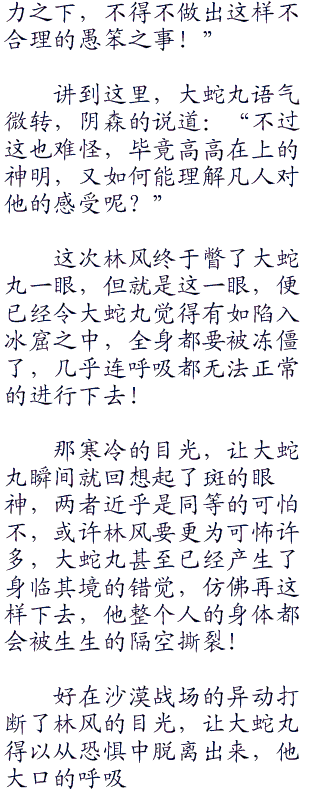 力之下，不得不做出这样不
合理的愚笨之事！”
讲到这里，大蛇丸语气
微转，阴森的说道：“不过
这也难怪，毕竟高高在上的
神明，又如何能理解凡人对
他的感受呢？”
这次林风终于瞥了大蛇
丸一眼，但就是这一眼，便
已经令大蛇丸觉得有如陷入
冰窟之中，全身都要被冻僵
了，几乎连呼吸都无法正常
的进行下去！
那寒冷的目光，让大蛇
丸瞬间就回想起了斑的眼
神，两者近乎是同等的可怕
不，或许林风要更为可怖许
多，大蛇丸甚至已经产生了
身临其境的错觉，仿佛再这
样下去，他整个人的身体都
会被生生的隔空撕裂！
好在沙漠战场的异动打
断了林风的目光，让大蛇丸
得以从恐惧中脱离出来，他
大口的呼吸